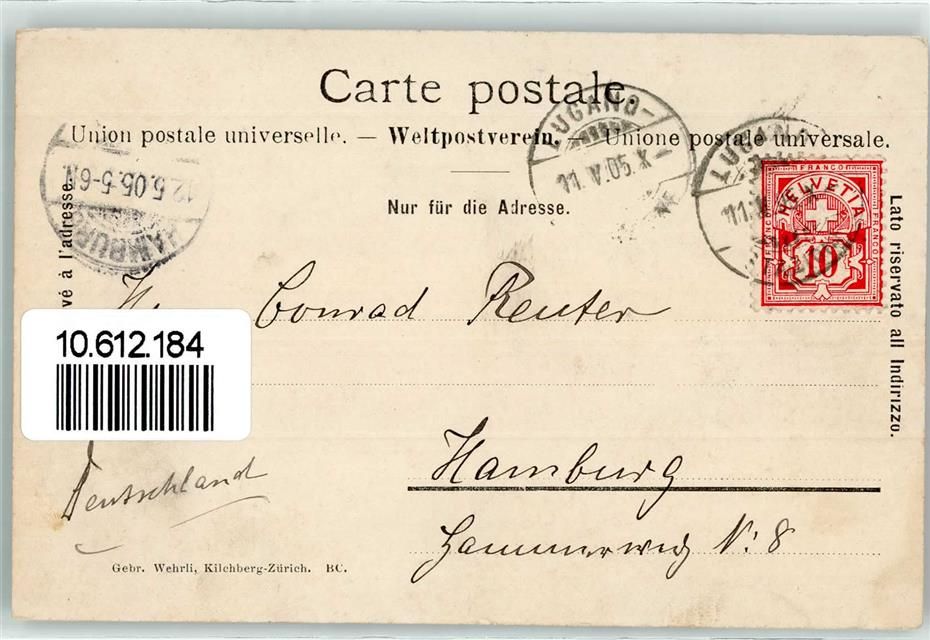 Carte postale.
Union postale universelle. — Weltpostverein. — Unione postale universale.
Nur für die Adresse.
LUGANO
11.V.05.X
LUGANO
11.V
12.5.05.5-6N.
HAMBURG
FRANCO
HELVETIA
FRANCO
FRANCO
10
vé à l'adresse.
Lato riservato all Indirizzo.
Conrad Reuter
10.612.184
Hamburg
Deutschland
Hammerweg N. 8
Gebr. Wehrli, Kilchberg-Zürich. BC.